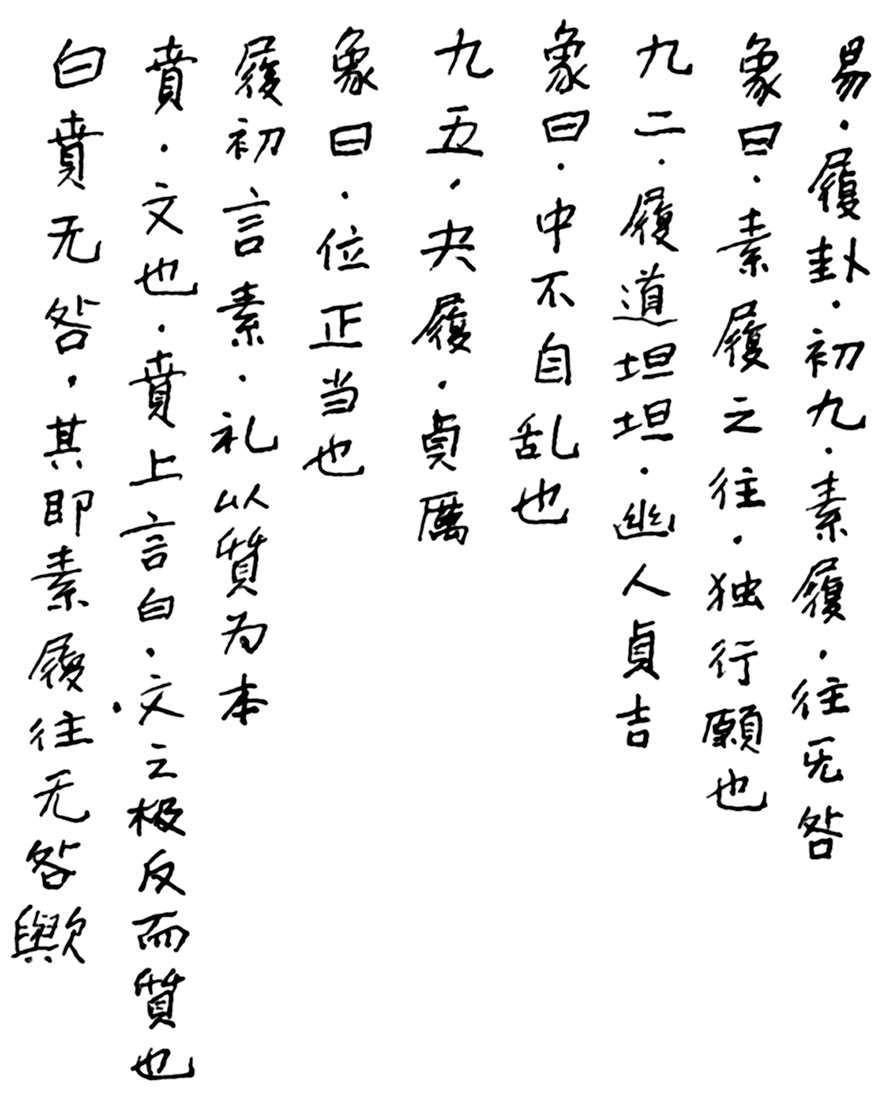 易·履卦·初九·素履·往无咎
象曰·素履之往·独行願也
九二·履道坦坦·幽人貞吉
象曰·中不自乱也
九五·夬履·貞厲
象曰·位正当也
履初言素·礼以質为本
賁·文也·賁上言白·文之极反而質也
白賁无咎·其即素履往无咎歟